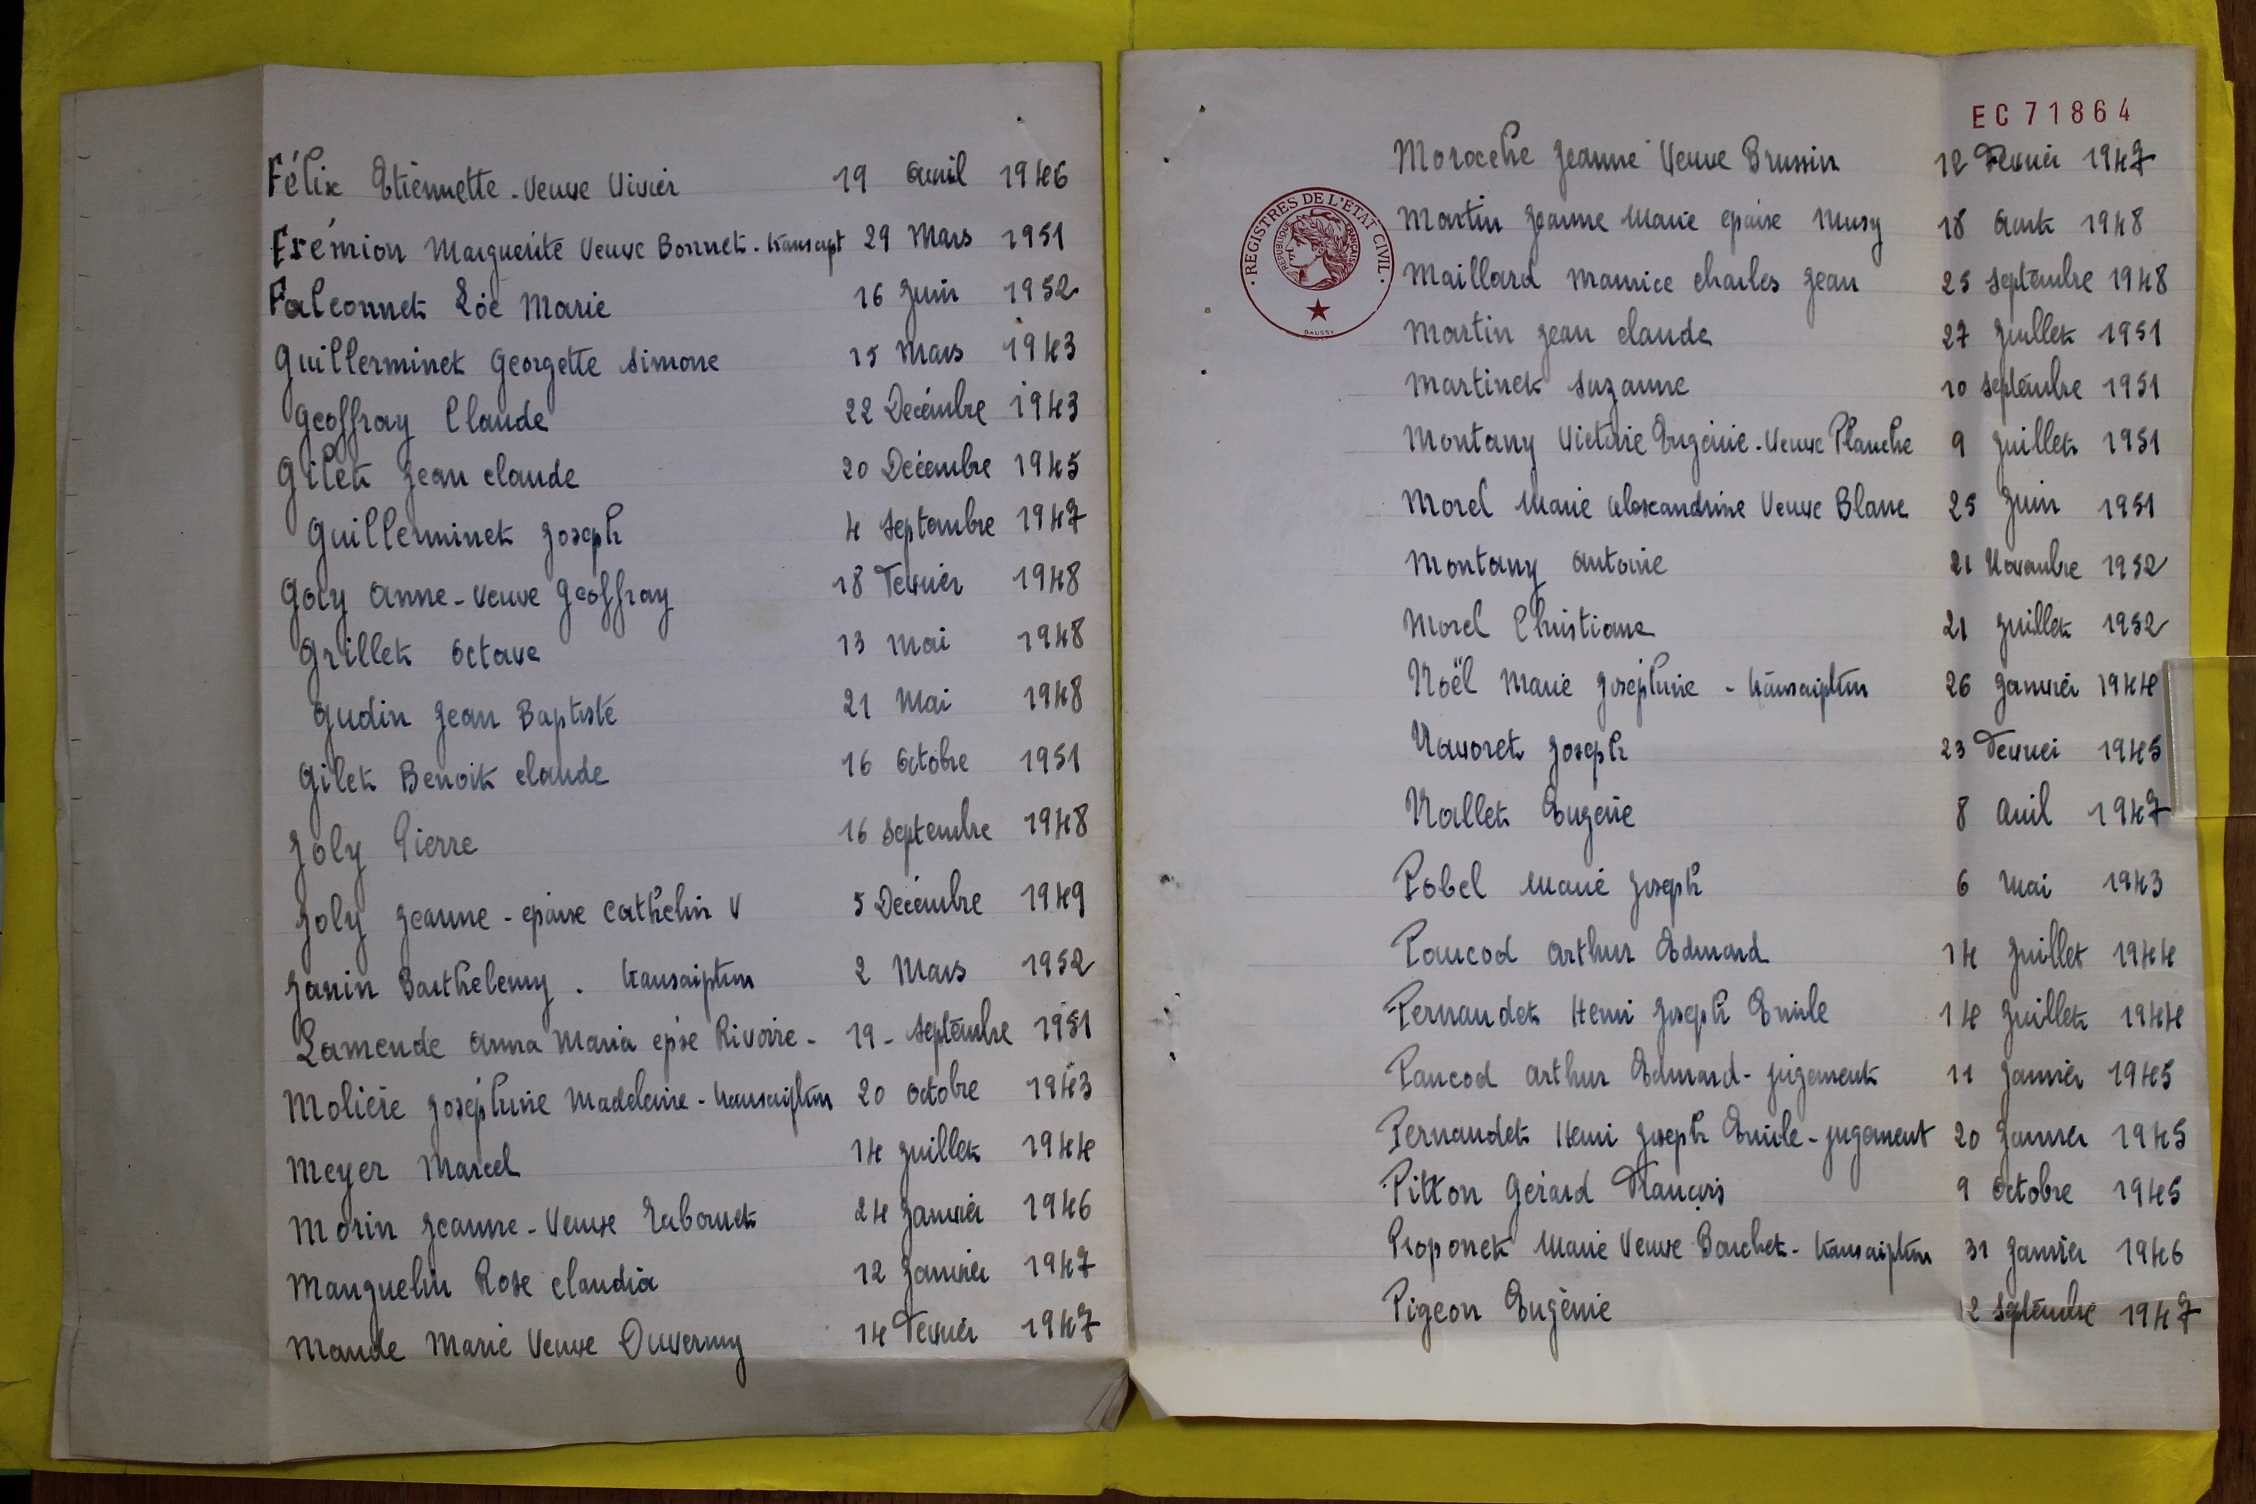 Félix Etiennette - Veuve Vivier 19 Avril 1946
Frémion Marguerite Veuve Bonnet - transcript 29 Mars 1951
Falconnet Zoé Marie 16 Juin 1952
Guillerminet Georgette Simone 15 Mars 1943
Geoffray Claude 22 Décembre 1943
Gilet Jean Claude 20 Décembre 1945
Guillerminet Joseph 4 Septembre 1947
Goly Anne - Veuve Geoffray 18 Fevrier 1948
Grillet Octave 13 Mai 1948
Gudin Jean Baptiste 21 Mai 1948
Gilet Benoit Claude 16 Octobre 1951
Joly Pierre 16 Septembre 1948
Joly Jeanne - epouse Cathelin V 5 Décembre 1949
Janin Barthelemy . transcription 2 Mars 1952
Lamende Anna Maria epse Rivoire - 19 - Septembre 1951
Molière Joséphine Madeleine - transcription 20 Octobre 1943
Meyer Marcel 14 Juillet 1944
Morin Jeanne - Veuve 24 Janvier 1946
Manguelin Rose Claudia 12 Janvier 1947
Mande Marie Veuve Duvernay 14 Fevrier 1947
EC 71864
REGISTRES DE L'ETAT CIVIL
REPUBLIQUE FRANCAISE
Moroche Jeanne Veuve Brussin 12 Fevrier 1947
Martin Jeanne Marie epouse Musy 18 Aout 1948
Maillard Maurice Charles Jean 25 Septembre 1948
Martin Jean Claude 27 Juillet 1951
Martinet Suzanne 10 Septembre 1951
Montany Victorie Eugénie - Veuve Planche 9 Juillet 1951
Morel Marie Alexandrine Veuve Blanc 25 Juin 1951
Montany Antoine 21 Novembre 1952
Morel Christiane 21 Juillet 1952
Noël Marie Joséphine - transcription 26 Janvier 1944
Navoret Joseph 23 Fevrier 1945
Nallet Eugénie 8 Avril 1947
Pobel Marie Joseph 6 Mai 1943
Paucod Arthur Edmard 14 Juillet 1944
Pernaudet Henri Joseph Emile 14 Juillet 1944
Paucod Arthur Edmard - jugement 11 Janvier 1945
Pernaudet Henri Joseph Emile - jugement 20 Janvier 1945
Pitton Gérard François 9 Octobre 1945
Proponet Marie Veuve Barchet - transcription 31 Janvier 1946
Pigeon Eugènie 2 Septembre 1947